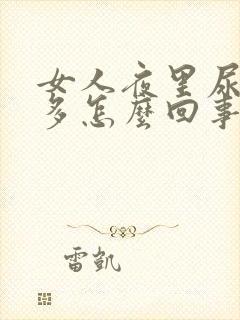 女人夜里尿
多怎麽回事
雷凱